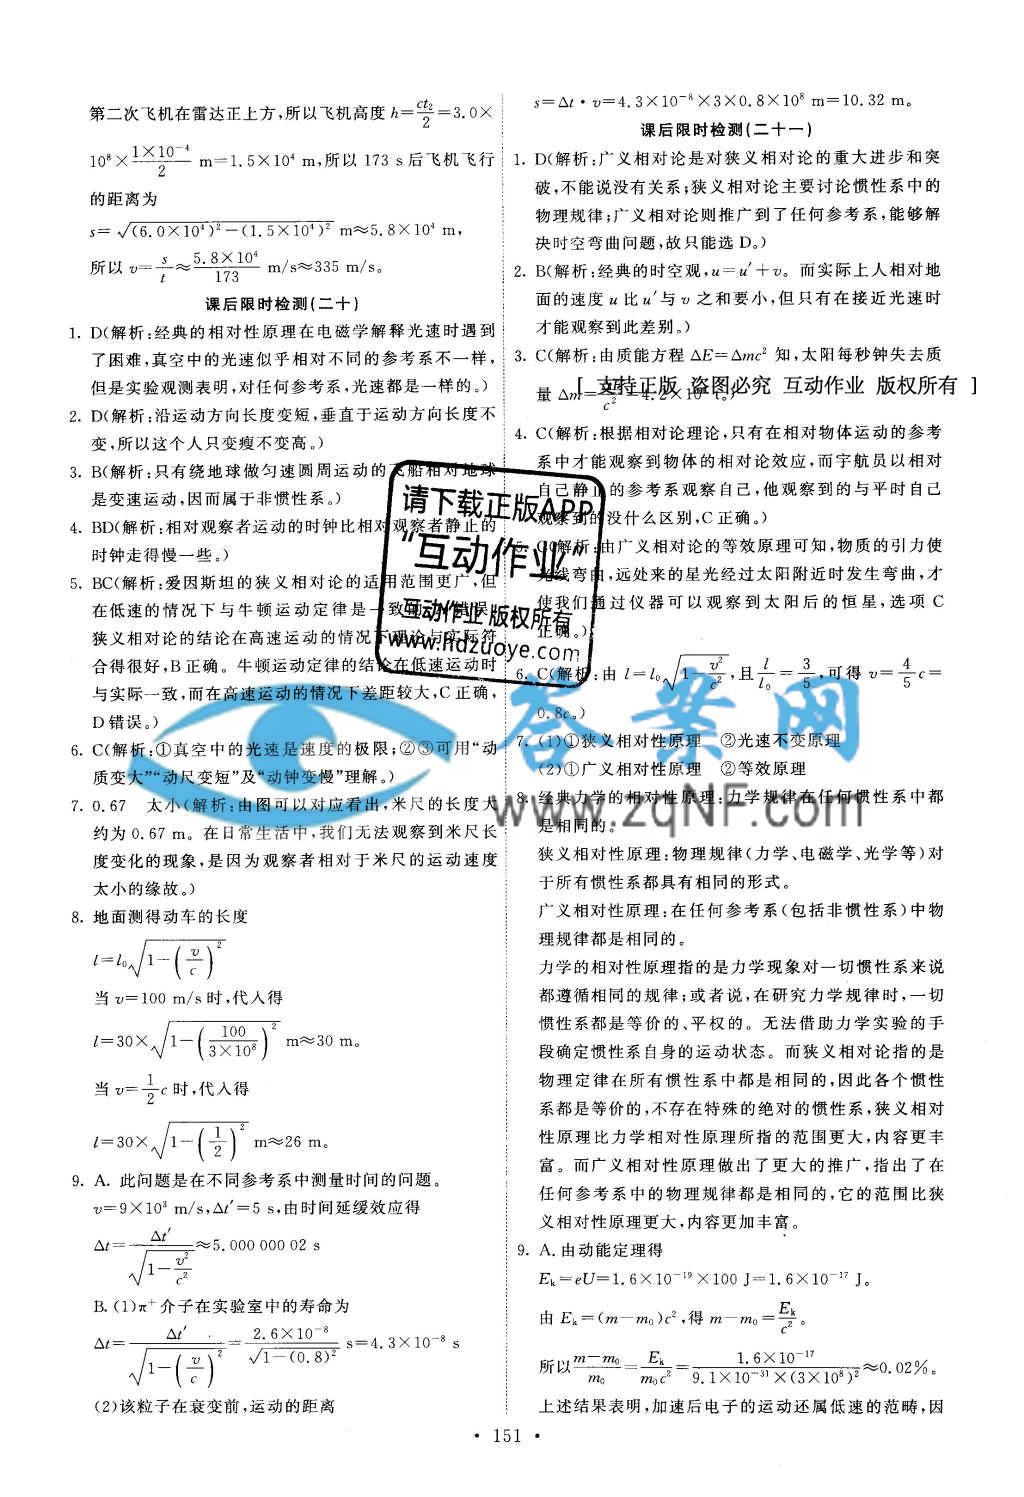 第二次飞机在雷达正上方,所以飞机高度 h=ct₂/2=3.0×
10⁸×1×10⁻⁴/2 m=1.5×10⁴ m,所以 173 s 后飞机飞行
的距离为
s=√(6.0×10⁴)²-(1.5×10⁴)² m≈5.8×10⁴ m,
所以 v=s/t≈5.8×10⁴/173 m/s≈335 m/s。
课后限时检测(二十)
1. D(解析:经典的相对性原理在电磁学解释光速时遇到
了困难,真空中的光速似乎相对不同的参考系不一样,
但是实验观测表明,对任何参考系,光速都是一样的。)
2. D(解析:沿运动方向长度变短,垂直于运动方向长度不
变,所以这个人只变瘦不变高。)
3. B(解析:只有绕地球做匀速圆周运动的飞船相对地球
是变速运动,因而属于非惯性系。)
4. BD(解析:相对观察者运动的时钟比相对观察者静止的
时钟走得慢一些。)
5. BC(解析:爱因斯坦的狭义相对论的适用范围更广,但
在低速的情况下与牛顿运动定律是一致的,A错误。
狭义相对论的结论在高速运动的情况下理论与实际符
合得很好,B正确。牛顿运动定律的结论在低速运动时
与实际一致,而在高速运动的情况下差距较大,C正确,
D错误。)
6. C(解析:①真空中的光速是速度的极限;②③可用“动
质变大”“动尺变短”及“动钟变慢”理解。)
7. 0.67 太小(解析:由图可以对应看出,米尺的长度大
约为 0.67 m。在日常生活中,我们无法观察到米尺长
度变化的现象,是因为观察者相对于米尺的运动速度
太小的缘故。)
8. 地面测得动车的长度
l=l₀√1-(v/c)²
当 v=100 m/s 时,代入得
l=30×√1-(100/3×10⁸)² m≈30 m。
当 v=1/2 c 时,代入得
l=30×√1-(1/2)² m≈26 m。
9. A. 此问题是在不同参考系中测量时间的问题。
v=9×10³ m/s,Δt′=5 s,由时间延缓效应得
Δt=Δt′/√1-v²/c²≈5.000 000 02 s
B. (1)π⁺介子在实验室中的寿命为
Δt=Δt′/√1-(v/c)²=2.6×10⁻⁸/√1-(0.8)² s=4.3×10⁻⁸ s
(2)该粒子在衰变前,运动的距离
s=Δt·v=4.3×10⁻⁸×3×0.8×10⁸ m=10.32 m。
课后限时检测(二十一)
1. D(解析:广义相对论是对狭义相对论的重大进步和突
破,不能说没有关系;狭义相对论主要讨论惯性系中的
物理规律;广义相对论则推广到了任何参考系,能够解
决时空弯曲问题,故只能选 D。)
2. B(解析:经典的时空观,u=u′+v。而实际上人相对地
面的速度 u 比 u′与 v 之和要小,但只有在接近光速时
才能观察到此差别。)
3. C(解析:由质能方程 ΔE=Δmc² 知,太阳每秒钟失去质
量 Δm= c² =4.2×10 t。)
[ 支持正版 盗图必究 互动作业 版权所有 ]
4. C(解析:根据相对论理论,只有在相对物体运动的参考
系中才能观察到物体的相对论效应,而宇航员以相对
自己静止的参考系观察自己,他观察到的与平时自己
观察到的没什么区别,C 正确。)
5. C(解析:由广义相对论的等效原理可知,物质的引力使
光线弯曲,远处来的星光经过太阳附近时发生弯曲,才
使我们通过仪器可以观察到太阳后的恒星,选项 C
正确。)
6. C(解析:由 l=l₀√1-v²/c²,且l/l₀=3/5,可得 v=4/5 c=
0.8c。)
7. (1)①狭义相对性原理 ②光速不变原理
(2)①广义相对性原理 ②等效原理
8. 经典力学的相对性原理:力学规律在任何惯性系中都
是相同的。
狭义相对性原理:物理规律(力学、电磁学、光学等)对
于所有惯性系都具有相同的形式。
广义相对性原理:在任何参考系(包括非惯性系)中物
理规律都是相同的。
力学的相对性原理指的是力学现象对一切惯性系来说
都遵循相同的规律;或者说,在研究力学规律时,一切
惯性系都是等价的、平权的。无法借助力学实验的手
段确定惯性系自身的运动状态。而狭义相对论指的是
物理定律在所有惯性系中都是相同的,因此各个惯性
系都是等价的,不存在特殊的绝对的惯性系,狭义相对
性原理比力学相对性原理所指的范围更大,内容更丰
富。而广义相对性原理做出了更大的推广,指出了在
任何参考系中的物理规律都是相同的,它的范围比狭
义相对性原理更大,内容更加丰富。
9. A. 由动能定理得
Eₖ=eU=1.6×10⁻¹⁹×100 J=1.6×10⁻¹⁷ J。
由 Eₖ=(m-m₀)c²,得 m-m₀=Eₖ/c²。
所以m-m₀/m₀=Eₖ/m₀c²=1.6×10⁻¹⁷/9.1×10⁻³¹×(3×10⁸)²≈0.02%。
上述结果表明,加速后电子的运动还属低速的范畴,因
请下载正版APP
“互动作业”
互动作业 版权所有
www.hdzuoye.com
答案网
www.zqNF.com
• 151 •